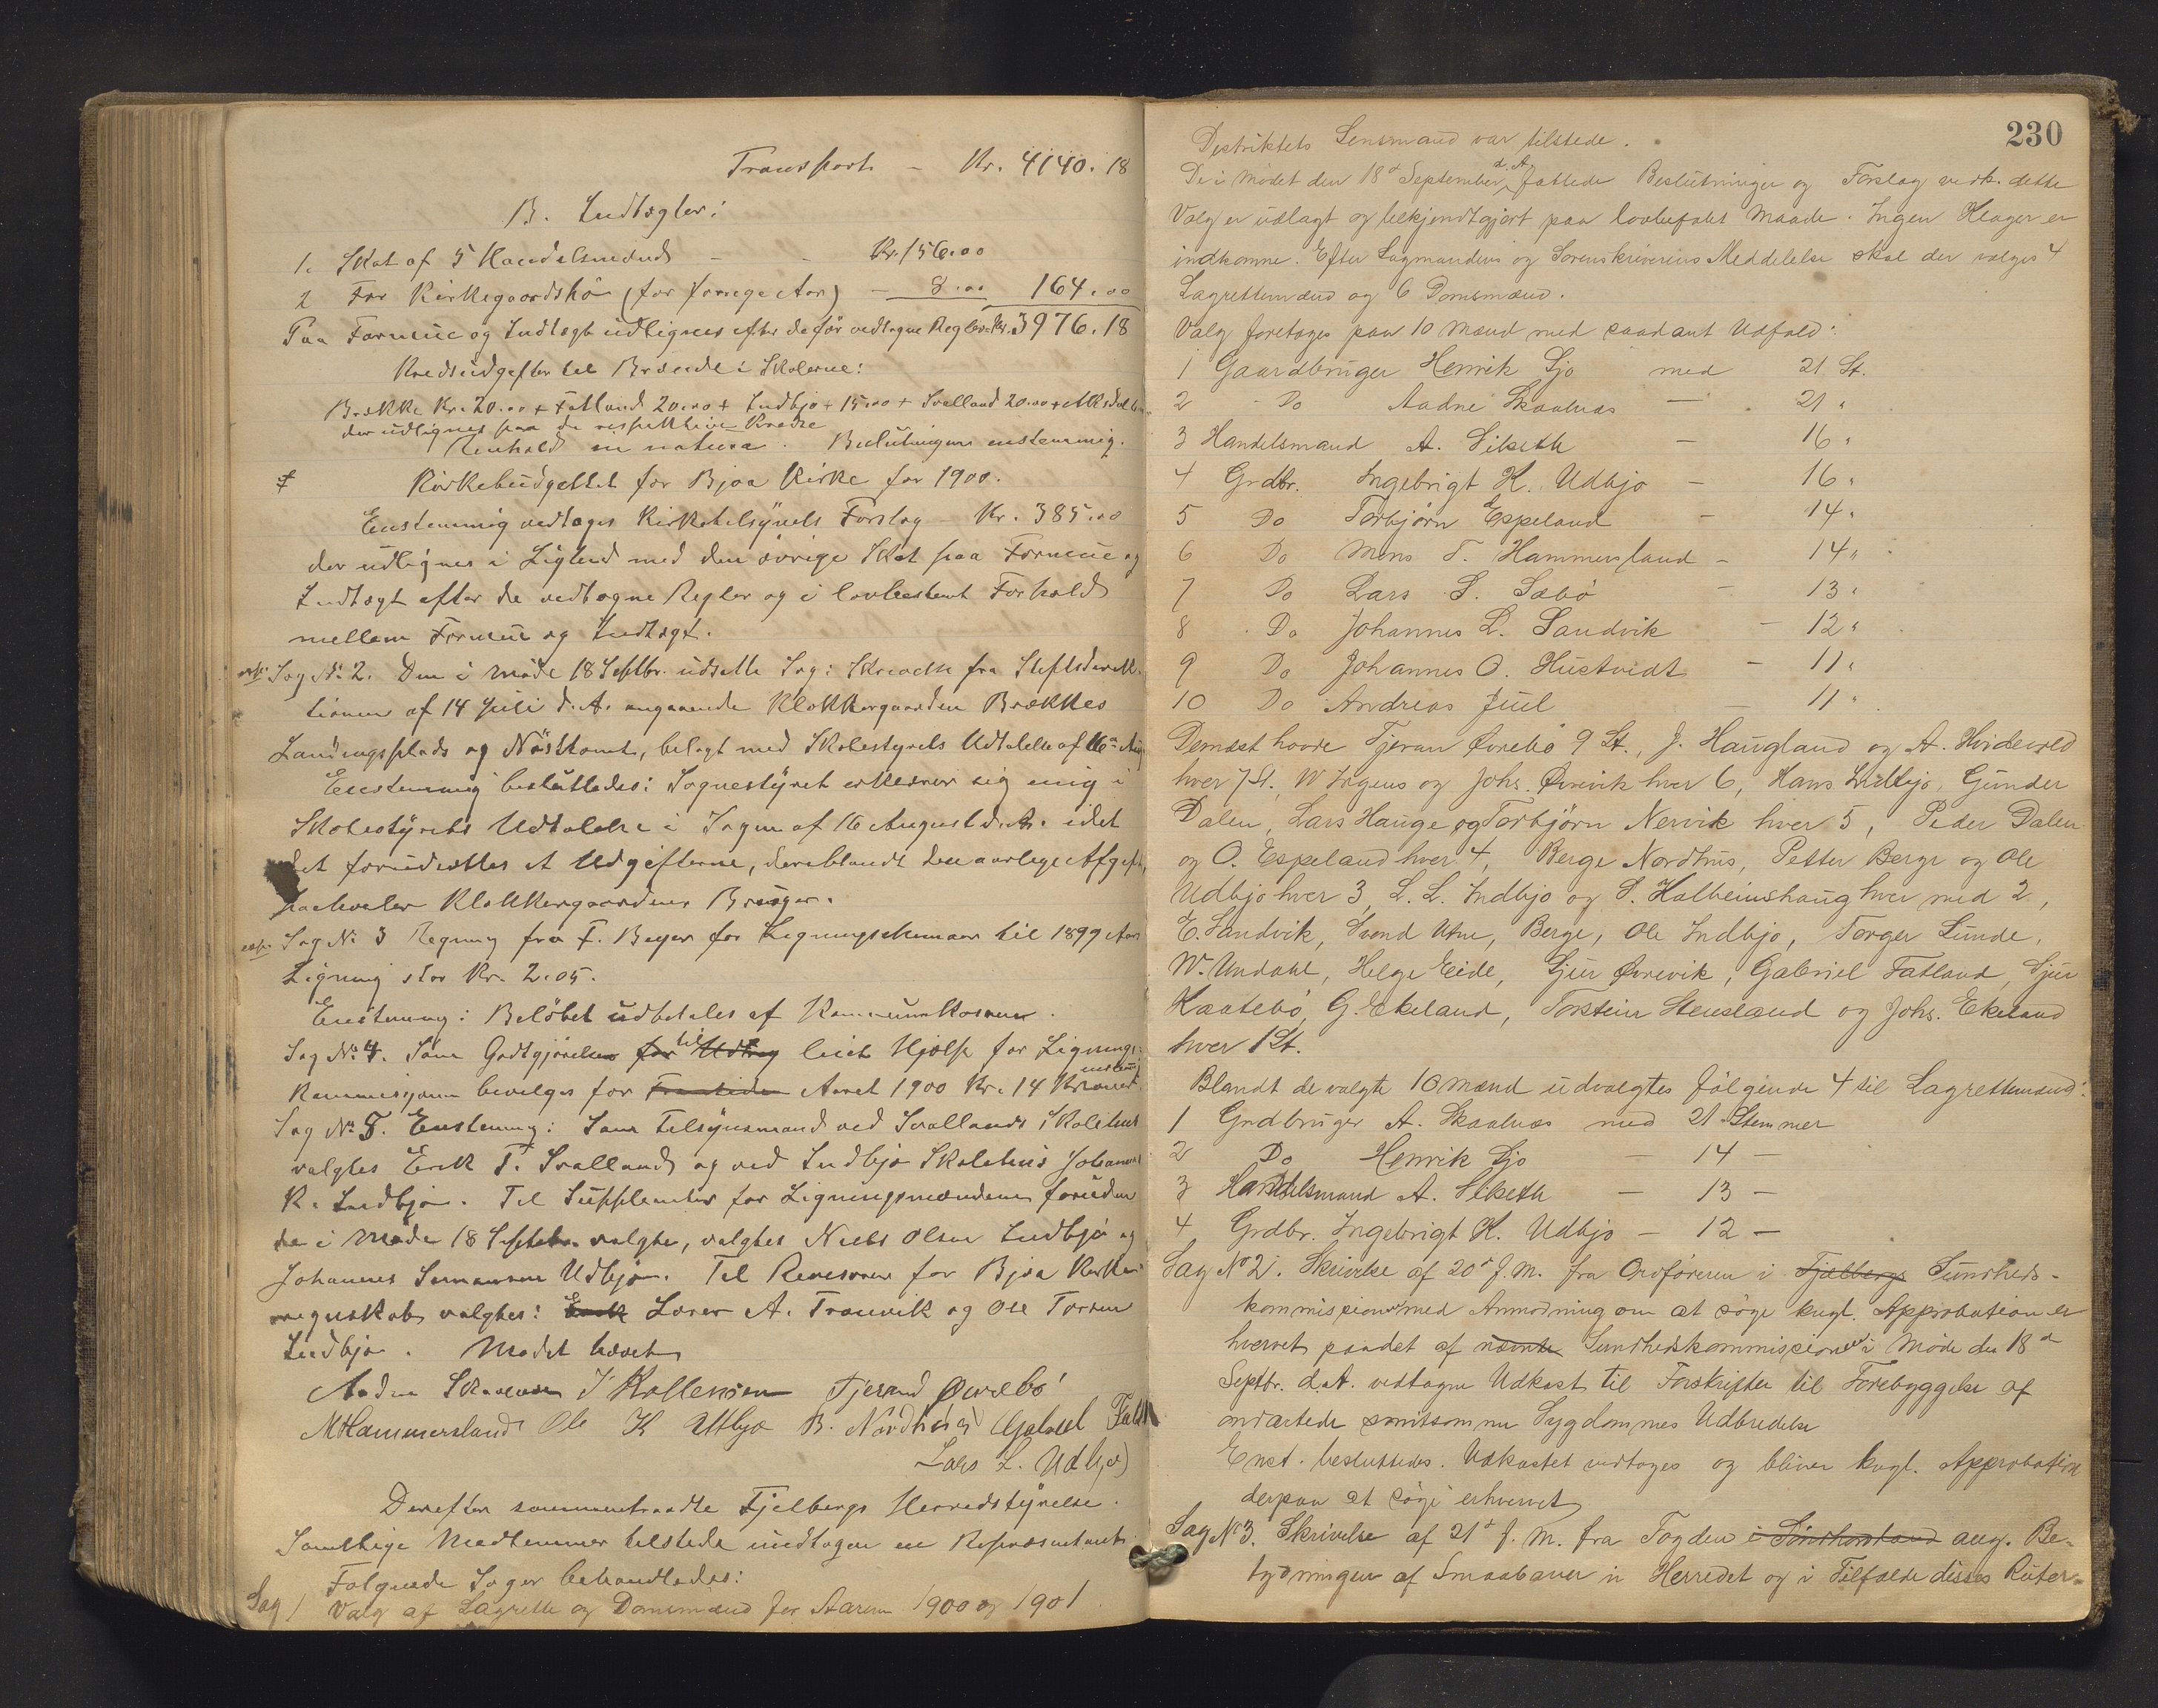 Transport - Kr. 4140.18
B. Indtægter:
1. Skat af 5 Handelsmænd - - Kr. 156.00
2 For Kirkegaardshö (for forrige Aar) - 8.00 164.00
Paa Formue og Indtægt udlignes efter de för vedtagne Regler Kr. 3976.18
Kredsudgifter til Brænde i Skolerne:
Brække Kr. 20.00 + Fatland 20.00 + Indbjo + 15.00 + Svalland 20.00 +
der udlignes paa de respektive Kredse
Renhold in natura. Beslutningen enstemmig.
Kirkebudgettet for Bjoa Kirke for 1900.
Enstemmig vedtages Kirketilsynets Forslag - Kr. 385.00
der udlignes i Lighed med den övrige Skat paa Formue og
Indtægt efter de vedtagne Regler og i lovbestemt Forhold
mellem Formue og Indtægt.
Sag No 2. Den i Möde 18 Septbr. udsatte Sag: Skrivelse fra Stiftsdirek-
tionen af 14 Juli d. A. angaaende Klokkergaarden Brækkes
Landingsplads og Nösttomt, belagt med Skolestyrets Udtalelse af 16de Aug
Enstemmig besluttedes: Sognestyret erklærer sig enig i
Skolestyrets Udtalelse i Sagen af 16 August d. A. idet
det forudsættes at Udgifterne, deriblandt den aarlige Afgift,
paahviler Klokkergaardens Bruger.
Sag No 3 Regning fra F. Beyer for Ligningsskemaer til 1899 Aars
Ligning stor Kr. 2.05.
Enstemmig: Belöbet udbetales af Kommunekassen.
Sag No 4. Som Godtgjörelse for til Udtog leiet Hjælp for Lignings-
kommisjonen bevilges for Fremtiden Aaret 1900 Kr. 14 Kroner enstemmig
Sag No 5. Enstemmig: Som Tilsynsmand ved Svallands Skolehus
valgtes Erik T. Svalland og ved Indbjo Skolehus Johannes
K. Indbjo. Til Supplenter for Ligningsmændene foruden
de i Möde 18 Septbr. valgte, valgtes Niels Olsen Indbjo og
Johannes Udbjo. Til Revisorer for Bjoa Kirke-
regnskab valgtes: Erik Lærer A. Tranvik og Ole Torsen
Indbjo. Mödet hævet
Aadne Skaalnæs Tjerand Övrebö
M Hammersland Ole K Utbjo B. Nordhus Gabriel Fatl
Lars L. Udbjo
Derefter sammentraadte Fjelbergs Herredstyrelse.
Samtlige Medlemmer tilstede undtagen en Repræsentant
Fölgende Sager behandledes:
Sag 1 Valg af Lagrette og Domsmænd for Aarene 1900 og 1901.
230
Destriktets Lensmand var tilstede.
De i Mödet den 18d September d. A. fattede Beslutninger og Forslag vedk. dette
Valg er udlagt og bekjendtgjort paa lovbefalet Maade. Ingen Klager er
indkomne. Efter Lagmandens og Sorenskriverens Meddelelse skal der vælges 4
Lagrettemænd og 6 Domsmænd.
Valg foretoges paa 10 Mænd med saadant Udfald:
1 Gaardbruger Henrik Sjo med 21 St.
2 Do Aadne Skaalnæs — 21 "
3 Handelsmand A. Silseth — 16 "
4 Grdbr. Ingebrigt K. Udbjo — 16 "
5 Do Torbjörn Eppeland — 14 "
6 Do Mons T. Hammersland - 14 "
7 Do Lars S. Sæbö — 13 "
8 Do Johannes L. Sandvik — 12 "
9 Do Johannes O. Hustvedt — 11 "
10 Do Andreas Juul — 11 "
Dernæst havde Tjeran Övrebö 9 St., J. Haugland og A. Hvideved
hver 7 St., W Irgens og Johs. Övrevik hver 6, Hans Indbjo, Gunder
Dalen, Lars Hauge og Torbjörn Nervik hver 5, Peder Dalen
og O. Espeland hver 4, Berge Nordhus, Petter Berge og Ole
Udbjo hver 3, L. L. Indbjo og S. Halbeinshaug hver med 2,
E. Sandvik, Svend Utne, Berge, Ole Indbjo, Torger Lunde,
W. Undahl, Helge Eide, Sjur Övrevik, Gabriel Fatland, Sjur
Kaatebö, G. Ekeland, Torstein Stensland og Johs. Ekeland
hver 1 St.
Blandt de valgte 10 Mænd udvalgtes fölgende 4 til Lagrettemænd:
1 Grdbruger A. Skaalnæs med 21 Stemmer
2 Do Henrik Sjo — 14 —
3 Handelsmand A. Silseth — 13 —
4 Grdbr. Ingebrigt K. Udbjo — 12 —
Sag No 2. Skrivelse af 20d f. M. fra Ordföreren i Fjelbergs Sundheds-
kommission med Anmodning om at söge kngl. Approbation er
hvervet paadet af nævnte Sundhedskommissionen i Möde den 18d
Septbr. d. A. vedtagne Udkast til Forskrifter til Forebyggelse af
ondartede smitsomme Sygdommes Udbredelse
Enst. besluttedes. Udkastet vedtoges og bliver kngl. Approbation
derpaa at söge erhvervet
Sag No 3. Skrivelse af 21d f. M. fra Fogden i Söndhordland ang. Be-
tydningen af Smaabaner in Herredet og i Tilfælde disses Ruter-